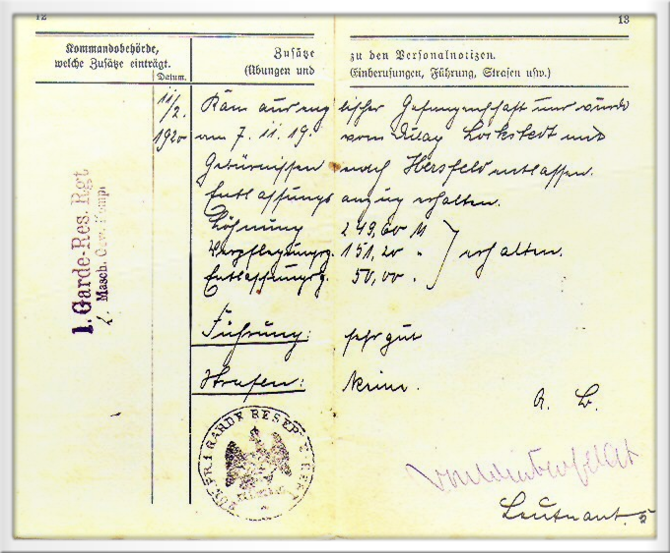 12
13
Kommandobehörde,
welche Zusätze einträgt.
Datum.
Zusätze zu den Personalnotizen.
(Übungen und Einberufungen, Führung, Strafen usw.)
11/2. Kam aus englischer Gefangenschaft und wurde
1920 am 7. 11. 19. vom Lockstedt und
nach Hersfeld entlassen.
Entlassungsanzug erhalten.
Löhnung 249,60 M
Verpflegungsg. 151,20 " erhalten.
Entlassungsg. 50,00 "
Führung: sehr gut
Strafen: Keine.
1. Garde-Res. Rgt
2. Masch. Gew. Komp.
GARDE RESERVE
Leutnant